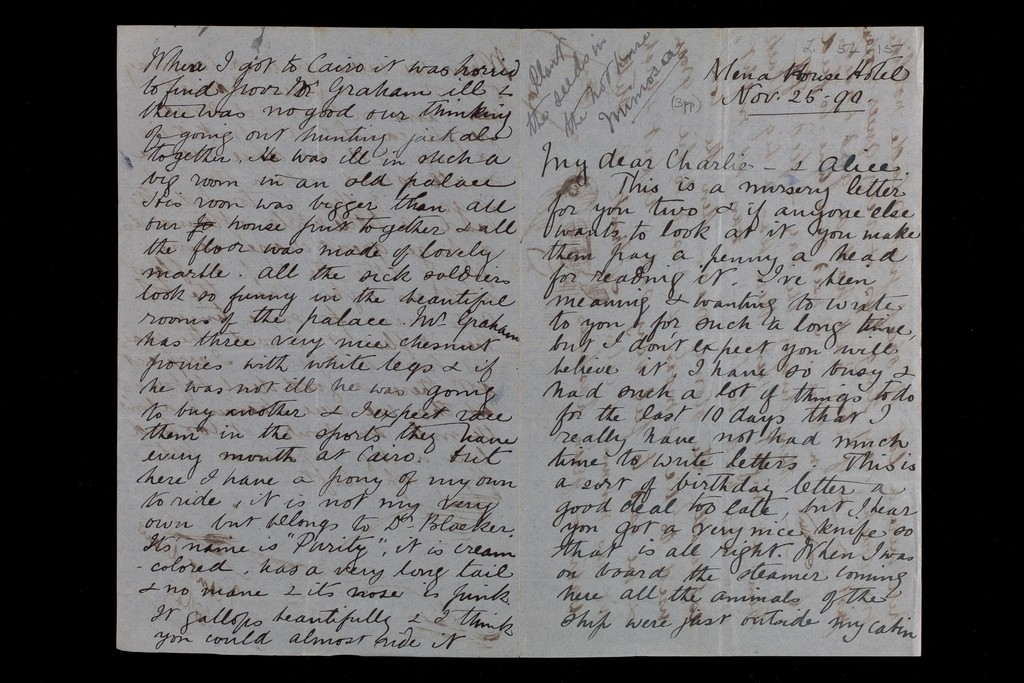 2 54 15
Mena House Hotel
Nov. 25-90
Plant
the seeds in
the hot house
Mimosa
My dear Charlie - & Alice.
This is a nursery letter
for you two & if anyone else
wants to look at it you make
them pay a penny a head
for reading it. I've been
meaning & wanting to write
to you for such a long time,
but I don't expect you will
believe it. I have so busy &
had such a lot of things to do
for the last 10 days that I
really have not had much
time to write letters. This is
a sort of birthday letter a
good deal too late, but I hear
you got a very nice knife so
that is all right. When I was
on board the steamer coming
here all the animals of the
ship were just outside my cabin
When I got to Cairo it was horrid
to find poor Mr Graham ill &
there was no good our thinking
of going out hunting jackals
together. He was ill in such a
big room in an old palace
His room was bigger than all
our house put together & all
the floor was made of lovely
marble. All the sick soldiers
look so funny in the beautiful
rooms of the palace. Mr Graham
has three very nice chesnut
ponies with white legs & if
he was not ill he was going
to buy another & I expect race
them in the sports they have
every month at Cairo. But
here I have a pony of my own
to ride, it is not my very
own but belongs to Dr Blacker.
Its name is "Purity", it is cream
-colored, has a very long tail
& no mane & its nose is pink.
It gallops beautifully & I think
you could almost ride it